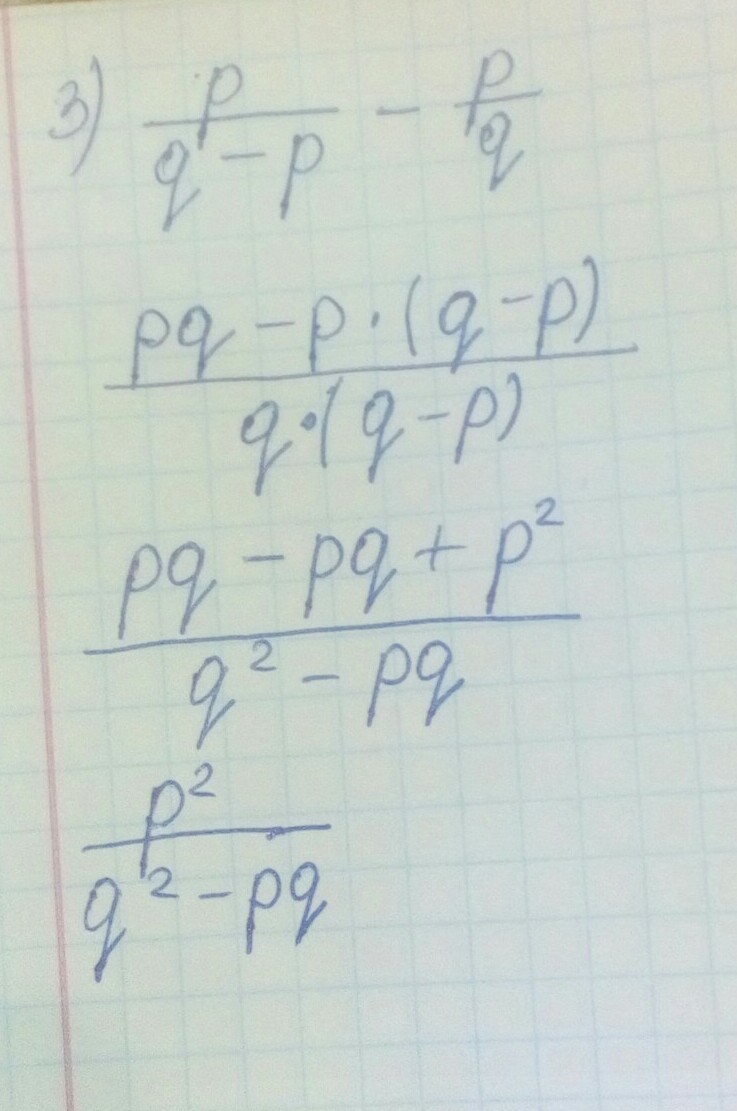 3) p/(q - p) - p/q
(pq - p · (q - p))/(q · (q - p))
(pq - pq + p²)/(q² - pq)
p²/(q² - pq)